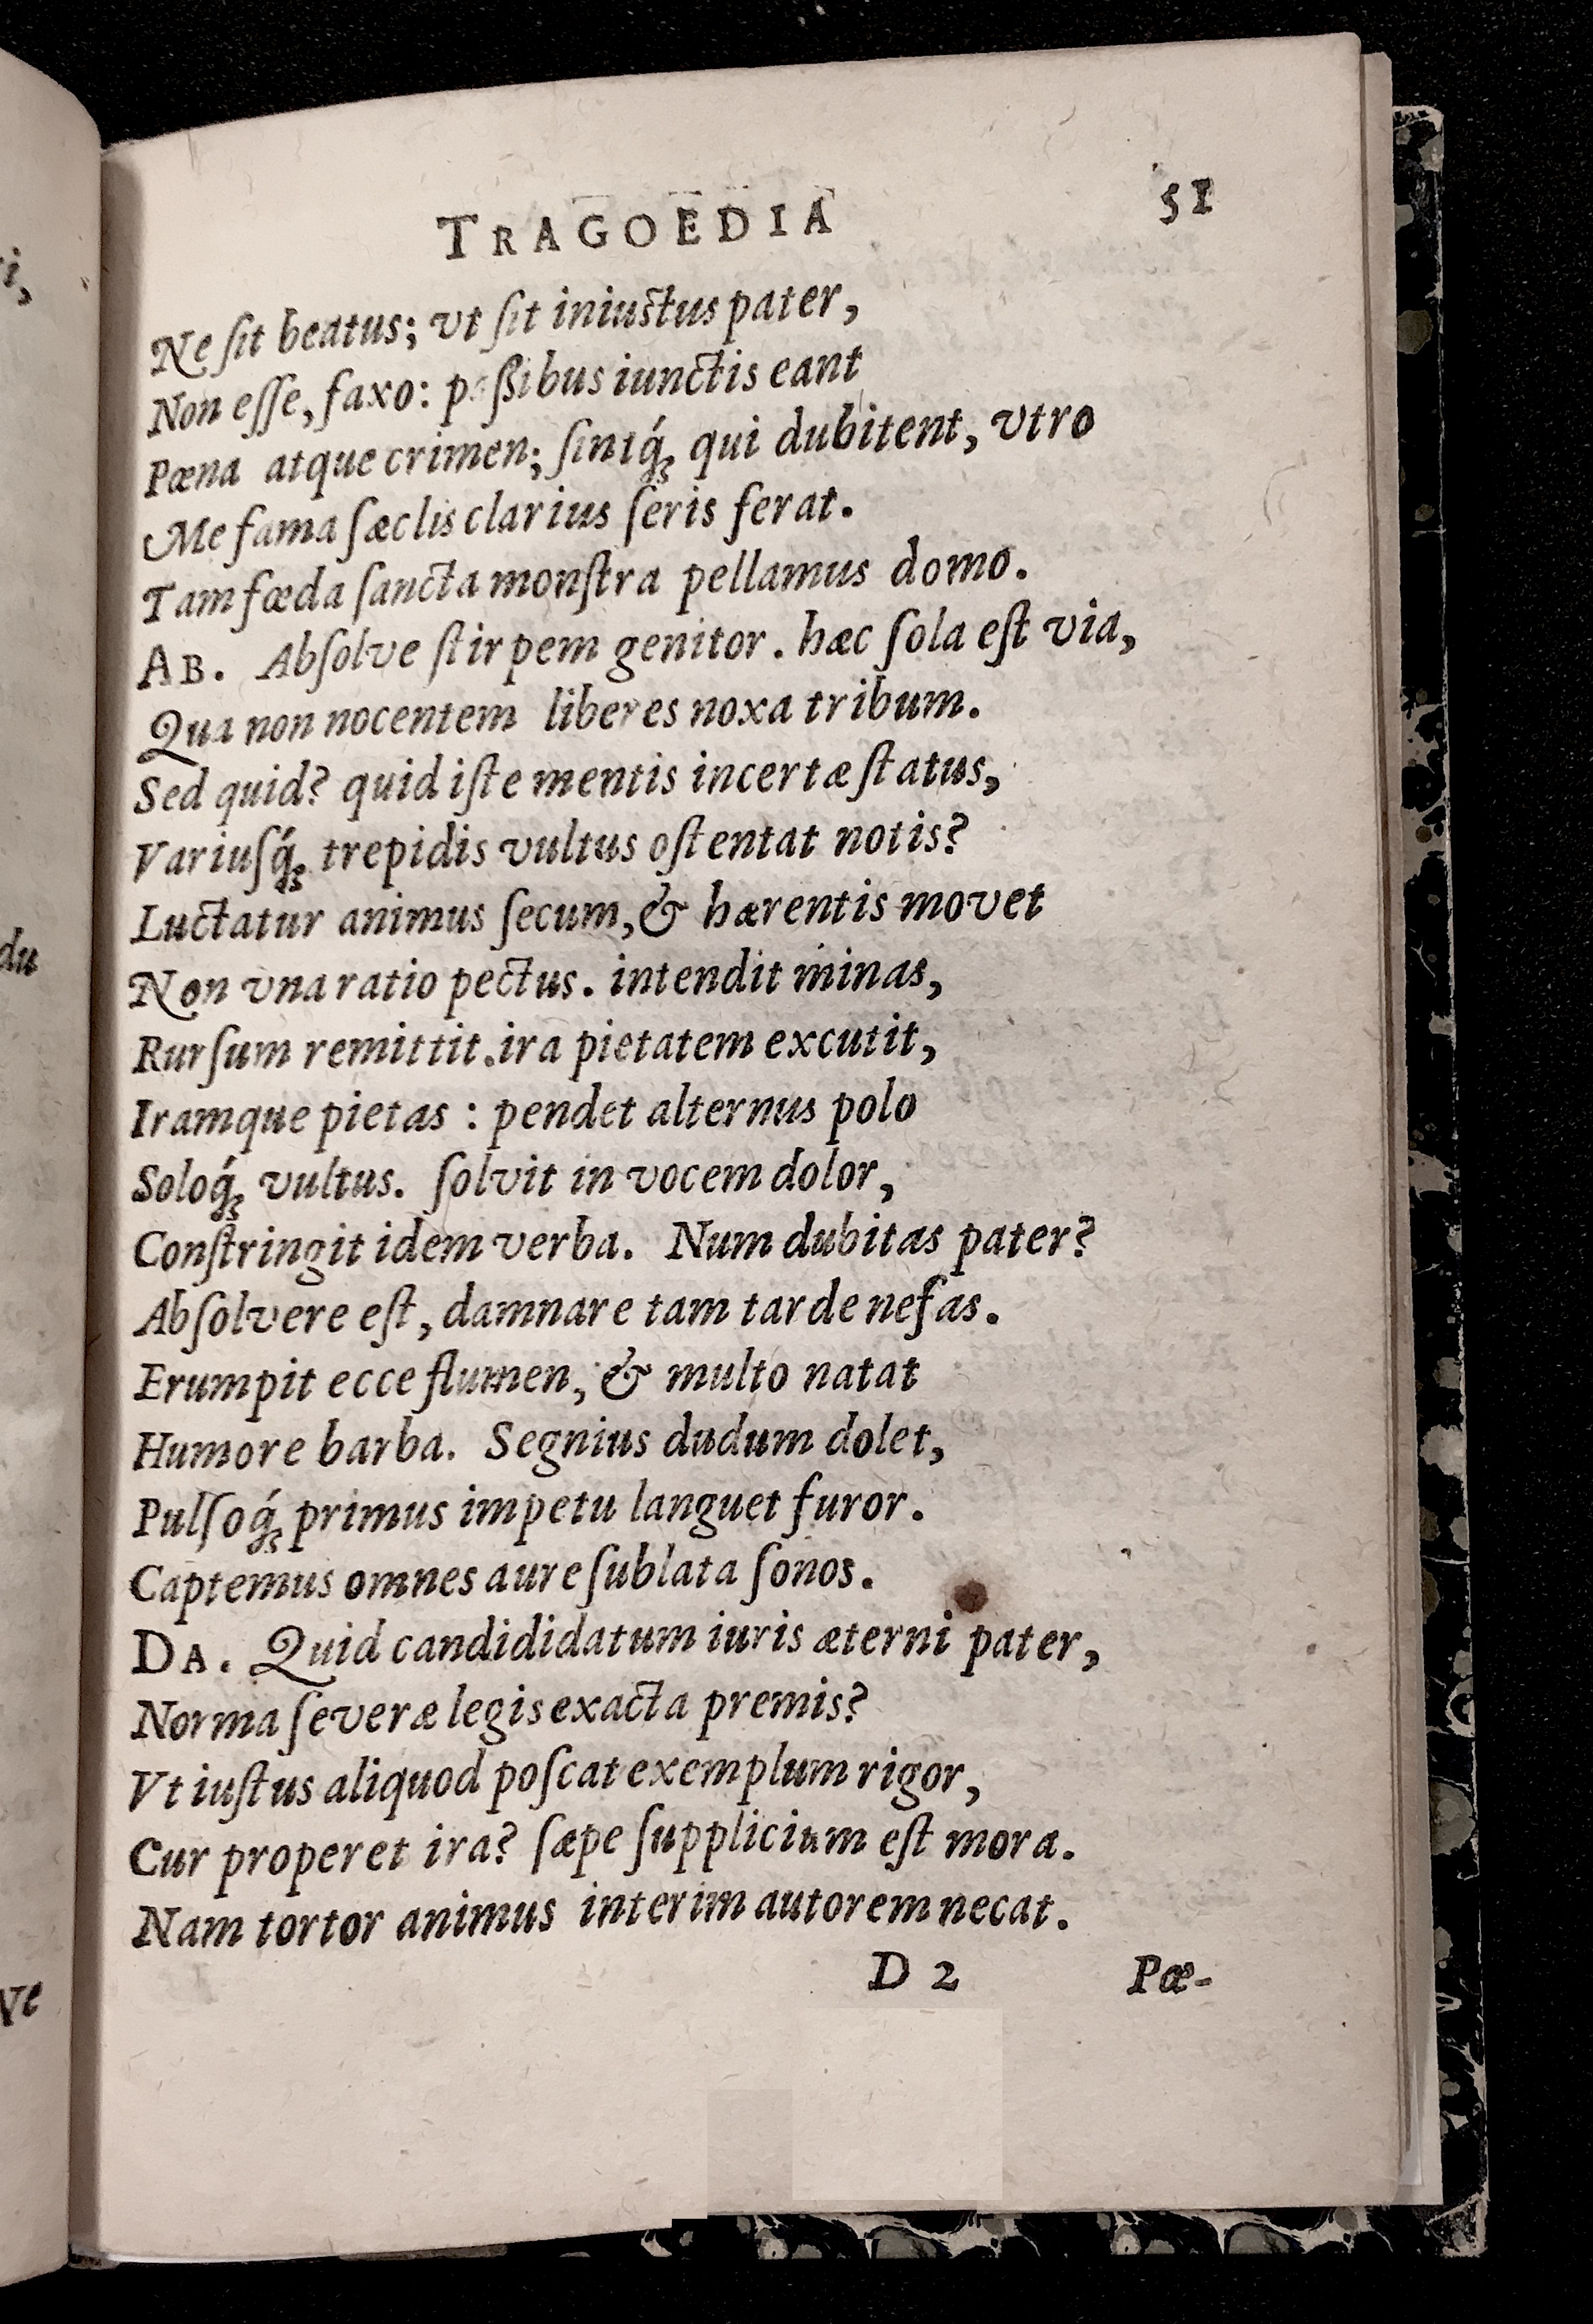 TRAGOEDIA 51
Ne ſit beatus; vt ſit iniuſtus pater,
Non eſſe, faxo: paſsibus iunctis eant
Pœna atque crimen; ſintq́ꝫ qui dubitent, vtro
Me fama ſæclis clarius ſeris ferat.
Tam fœda ſancta monſtra pellamus domo.
AB. Abſolve ſtirpem genitor. hæc ſola eſt via,
Qua non nocentem liberes noxa tribum.
Sed quid? quid iſte mentis incertæ ſtatus,
Variuſq́ꝫ trepidis vultus oſtentat notis?
Luctatur animus ſecum, & hærentis movet
Non vna ratio pectus. intendit minas,
Rurſum remittit. ira pietatem excutit,
Iramque pietas : pendet alternus polo
Soloq́ꝫ vultus. ſolvit in vocem dolor,
Conſtringit idem verba. Num dubitas pater?
Abſolvere eſt, damnare tam tarde nefas.
Erumpit ecce flumen, & multo natat
Humore barba. Segnius dudum dolet,
Pulſoq́ꝫ primus impetu languet furor.
Captemus omnes aure ſublata ſonos.
DA. Quid candididatum iuris æterni pater,
Norma ſeveræ legis exacta premis?
Vt iuſtus aliquod poſcat exemplum rigor,
Cur properet ira? ſæpe ſupplicium eſt mora.
Nam tortor animus interim autorem necat.
D 2 Pœ-
i,
du
Ve